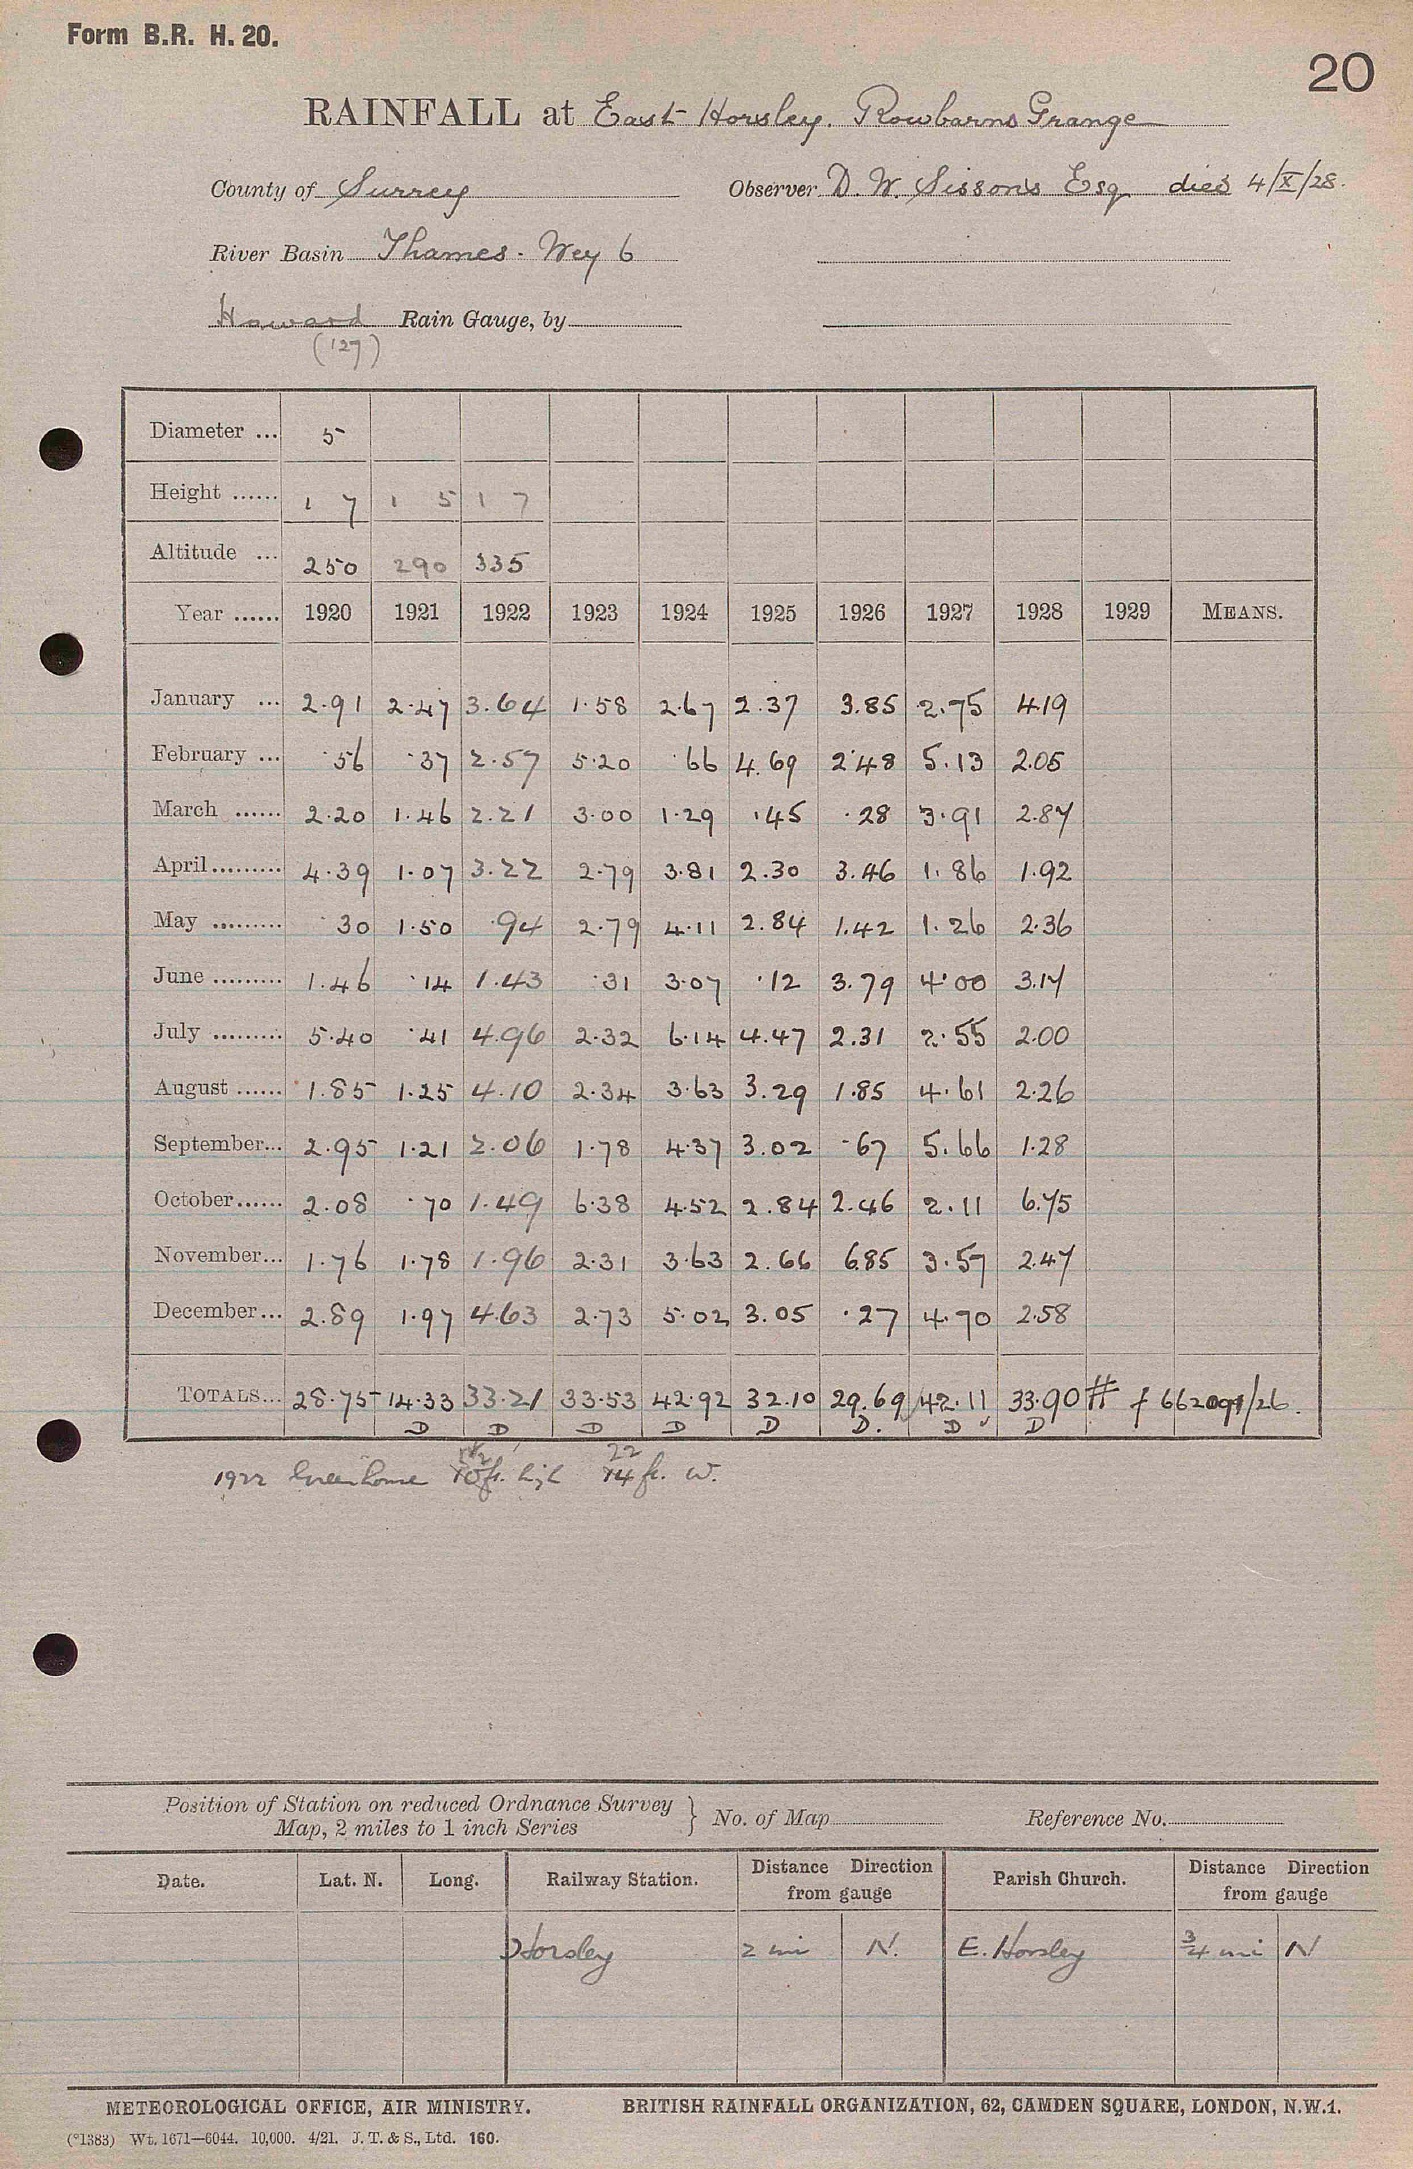 Form B.R. H. 20.
20
RAINFALL at East Horsley. Rowbarns Grange
County of Surrey Observer D. W. Sissons Esq died 4/X/28.
River Basin Thames. Wey 6
Howard Rain Gauge, by
(127)
Diameter ... 5
Height ...... 1 7 1 5 1 7
Altitude ... 250 290 335
Year ...... 1920 1921 1922 1923 1924 1925 1926 1927 1928 1929 MEANS.
January ... 2.91 2.47 3.64 1.58 2.67 2.37 3.85 2.75 4.19
February ... .56 .37 2.57 5.20 .66 4.69 2.48 5.13 2.05
March ...... 2.20 1.46 2.21 3.00 1.29 .45 .28 3.91 2.87
April ......... 4.39 1.07 3.22 2.79 3.81 2.30 3.46 1.86 1.92
May ......... .30 1.50 .94 2.79 4.11 2.84 1.42 1.26 2.36
June ......... 1.46 .14 1.43 .31 3.07 .12 3.79 4.00 3.17
July ......... 5.40 .41 4.96 2.32 6.14 4.47 2.31 2.55 2.00
August ...... 1.85 1.25 4.10 2.34 3.63 3.29 1.85 4.61 2.26
September... 2.95 1.21 2.06 1.78 4.37 3.02 .67 5.66 1.28
October...... 2.08 .70 1.49 6.38 4.52 2.84 2.46 2.11 6.75
November... 1.76 1.78 1.96 2.31 3.63 2.66 6.85 3.57 2.47
December... 2.89 1.97 4.63 2.73 5.02 3.05 .27 4.70 2.58
TOTALS... 28.75 14.33 33.21 33.53 42.92 32.10 29.69 42.11 33.90 #
D D D D D D. D D
1922 Greenhouse ft. high 22 ft. W.
Position of Station on reduced Ordnance Survey
Map, 2 miles to 1 inch Series } No. of Map Reference No.
Date. Lat. N. Long. Railway Station. Distance Direction from gauge Parish Church. Distance Direction from gauge
Horsley 2 mi N. E. Horsley 3/4 mi N
METEOROLOGICAL OFFICE, AIR MINISTRY. BRITISH RAINFALL ORGANIZATION, 62, CAMDEN SQUARE, LONDON, N.W.1.
(*1383) Wt. 1671—6044. 10,000. 4/21. J. T. & S., Ltd. 160.